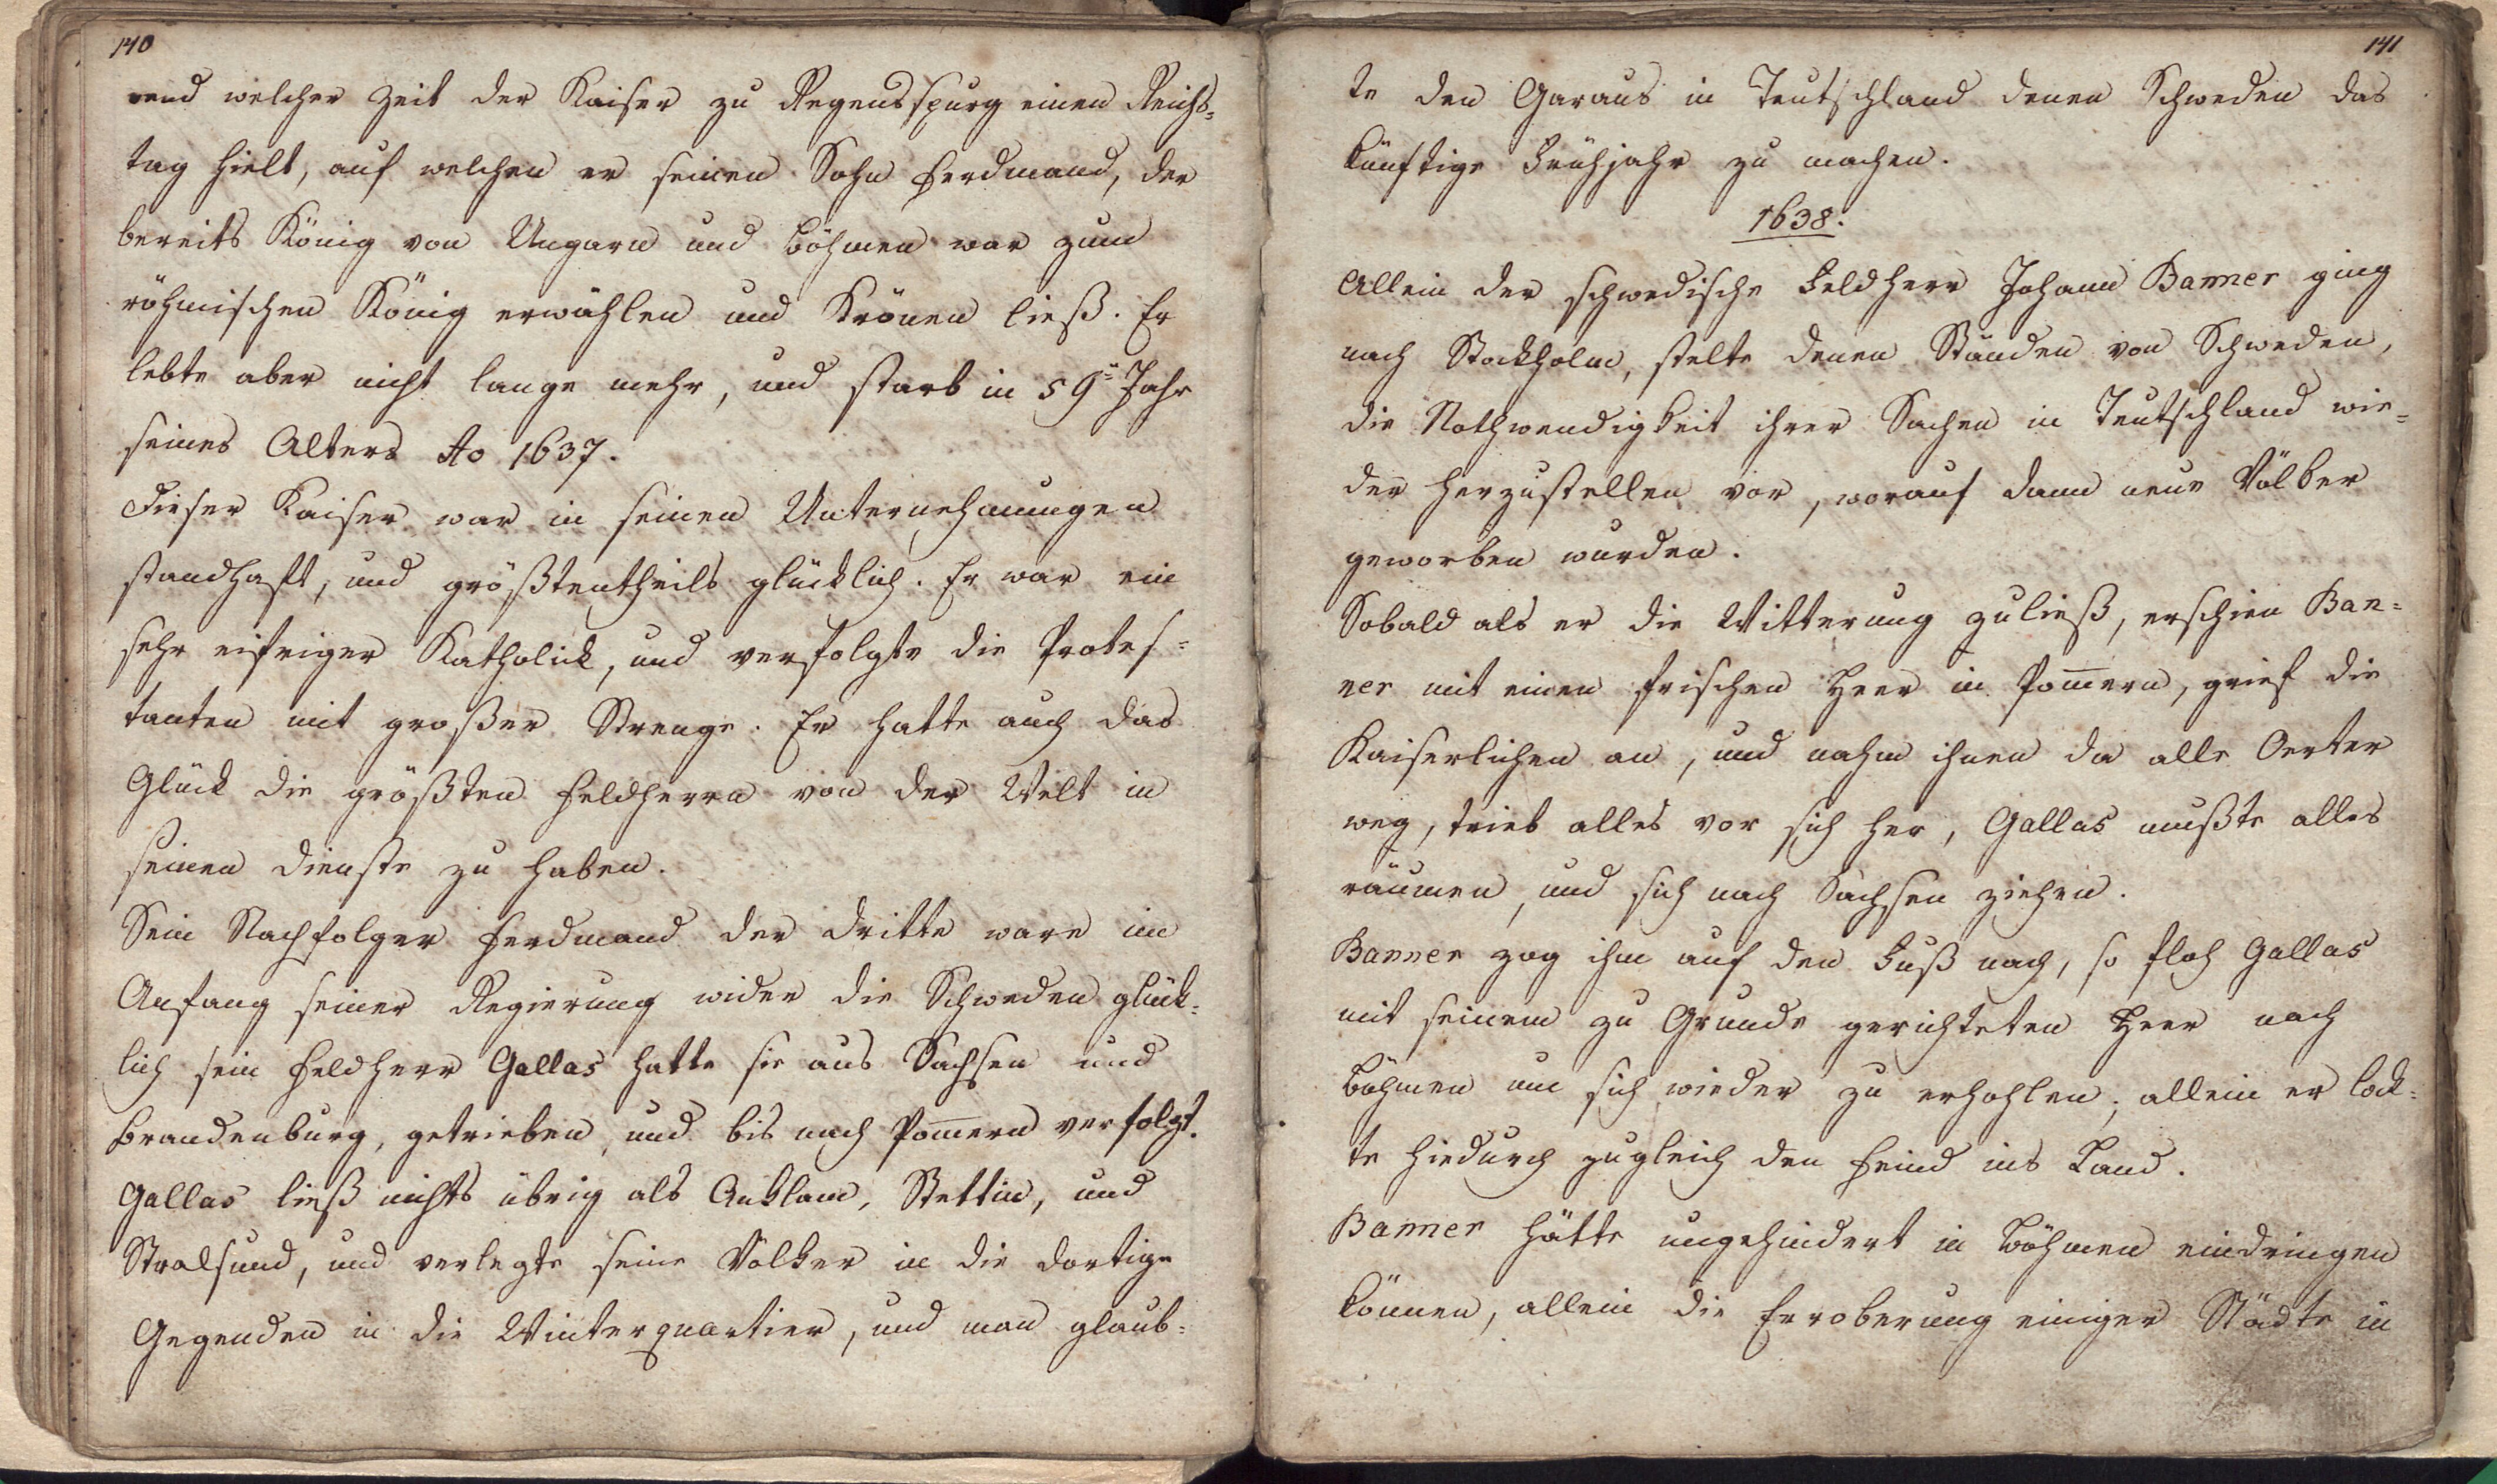 140
rend welcher Zeit der Kaiser zu Regensspurg einen Reichs=
tag hielt, auf welchen er seinen Sohn Ferdmand, der
bereits König von Ungarn und Böhmen war zum
röhmischen König erwählen und Krönen ließ. Er
lebte aber nicht lange mehr, und starb in 59ᵗ Jahr
seines Alters Ao 1637.
Dieser Kaiser war in seinen Unternehmungen
standhaft, und größtentheils glücklich. Er war ein
sehr eifriger Katholick, und verfolgte die Protes=
tanten mit großer Strenge. Er hatte auch das
Glück die größten Feldherrn von der Welt in
seinen Dienste zu haben.
Sein Nachfolger Ferdmand der Dritte ware im
Anfang seiner Regierung wider die Schweden glück=
lich sein Feldherr Gallas hatte sie aus Sachsen und
Brandenburg, getrieben, und bis nach Pom̅ern verfolgt.
Gallas ließ nichts übrig als Anklam, Stettin, und
Stralsund, und verlegte seine Völker in die dortige
Gegenden in die Winterquartier, und man glaub=
141
te den Garaus in Teutschland denen Schweden das
künftige Frühjahr zu machen.
1638.
Allein der schwedische Feldherr Johann Banner ging
nach Stockholm, stelte denen Ständen von Schweden,
die Nothwendigkeit ihrer Sachen in Teutschland wie=
der herzustellen vor, worauf dann neue Völker
geworben wurden.
Sobald als er die Witterung zuließ, erschien Ban=
ner mit einen frischen Heer in Pom̅ern, grief die
Kaiserlichen an, und nahm ihnen da alle Oerter
weg, trieb alles vor sich her, Gallas mußte alles
räumen, und sich nach Sachsen ziehen.
Banner zog ihm auf den Fuß nach, so floh Gallas
mit seinem zu Grunde gerichteten Heer nach
Böhmen um sich wieder zu erhohlen; allein er lock=
te hiedurch zugleich den Feind ins Land.
Banner hätte ungehindert in Böhmen eindringen
können, allein die Erroberung einiger Städte in